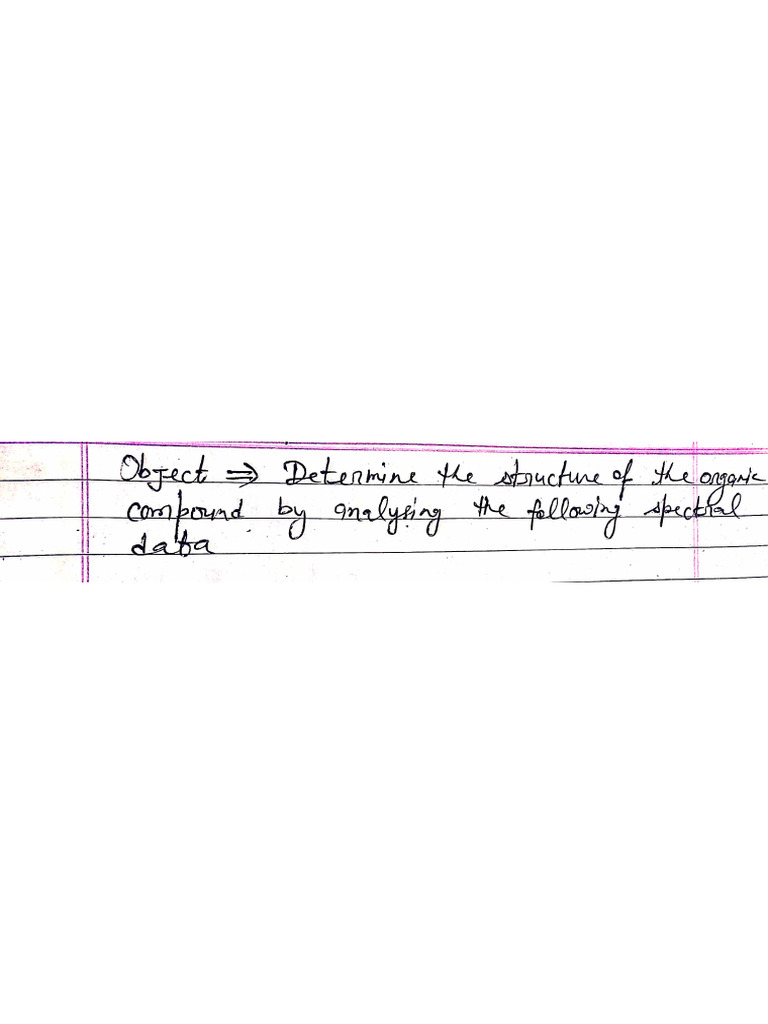 Object ⇒ Determine the structure of the organic
compound by analysing the following spectral
data